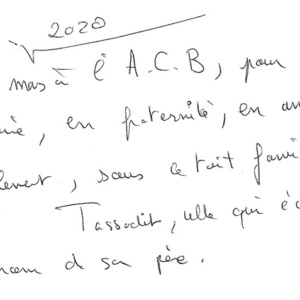 2020
mas à l'A.C.B, pour
, en fraternité, en am
lement, sous ce toit fami
Tassadit, celle qui éc
nom de son père.